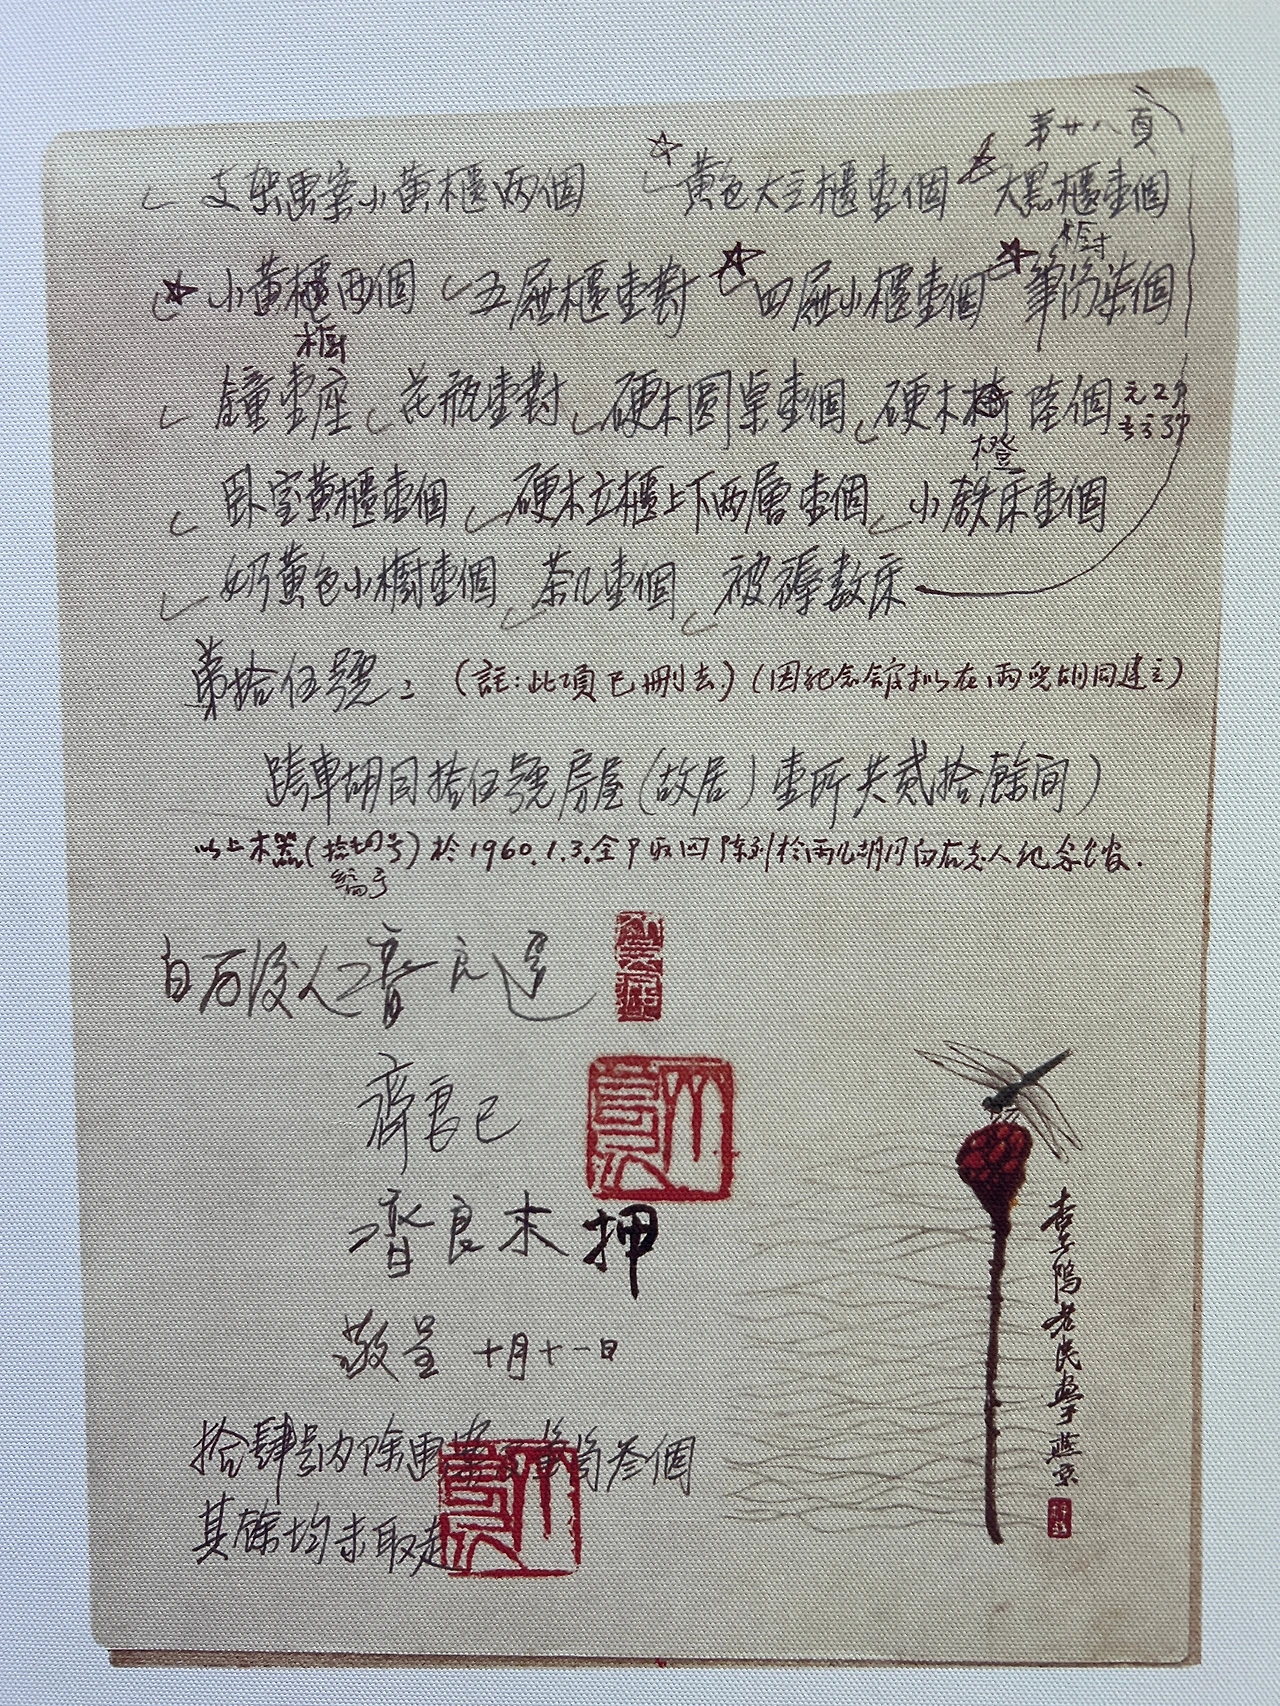 第廿八頁
支架画案小黃櫃两個 黃色大立櫃壹個 大黑櫃壹個
櫥
小黃櫃两個 五屜櫃壹對 四屜小櫃壹個 筆筒柒個
櫥
鐘壹座 花瓶壹對 硬木圓桌壹個 硬木 陸個
橙
卧室黃櫃壹個 硬木立櫃上下两層壹個 小鉄床壹個
奶黃色小櫥壹個 茶几壹個 被褥数床
第拾伍號：（註：此項已删去）（因紀念館拟在雨兒胡同建立）
跨車胡同拾伍號房屋（故居）壹所共貳拾餘间）
以上木器（拾四号）於1960.1.3.全部取回陈列於雨儿胡同白石老人纪念馆.
編号
白石後人齊良遲
齊良已
齊良末 押
敬呈 十月十一日
拾肆号内除画案 筆筒叁個
其餘均未取走
杏子隖老民學 燕京